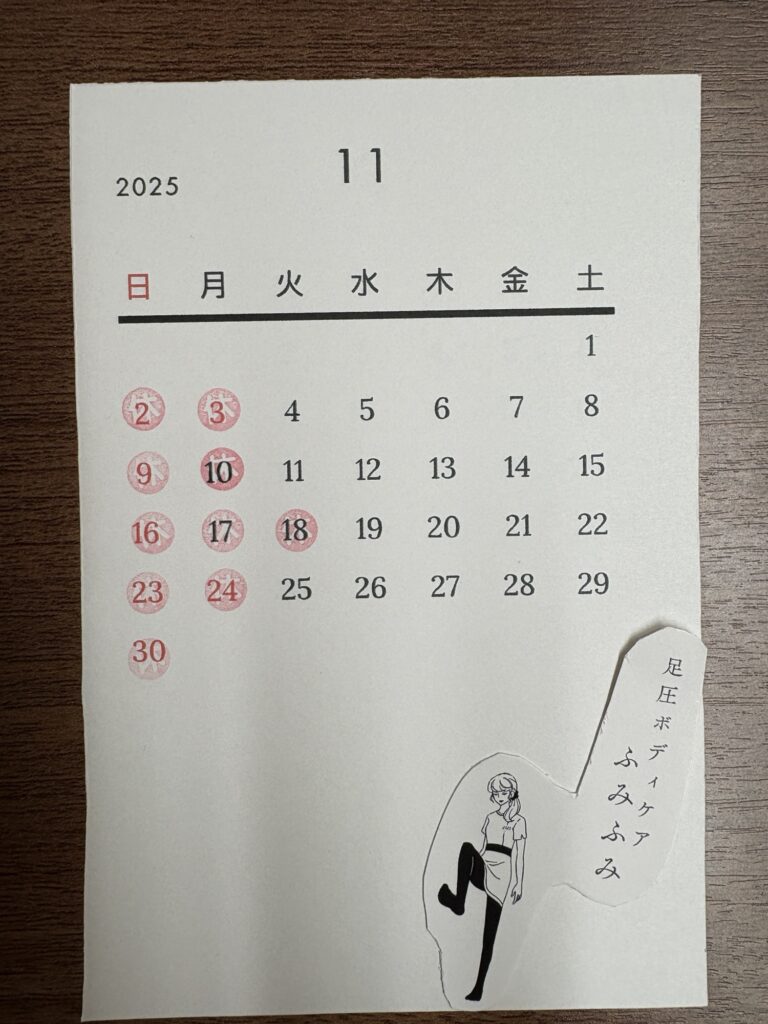 2025
11
日 月 火 水 木 金 土
1
2 3 4 5 6 7 8
9 10 11 12 13 14 15
16 17 18 19 20 21 22
23 24 25 26 27 28 29
30
足圧ボディケア
ふみふみ